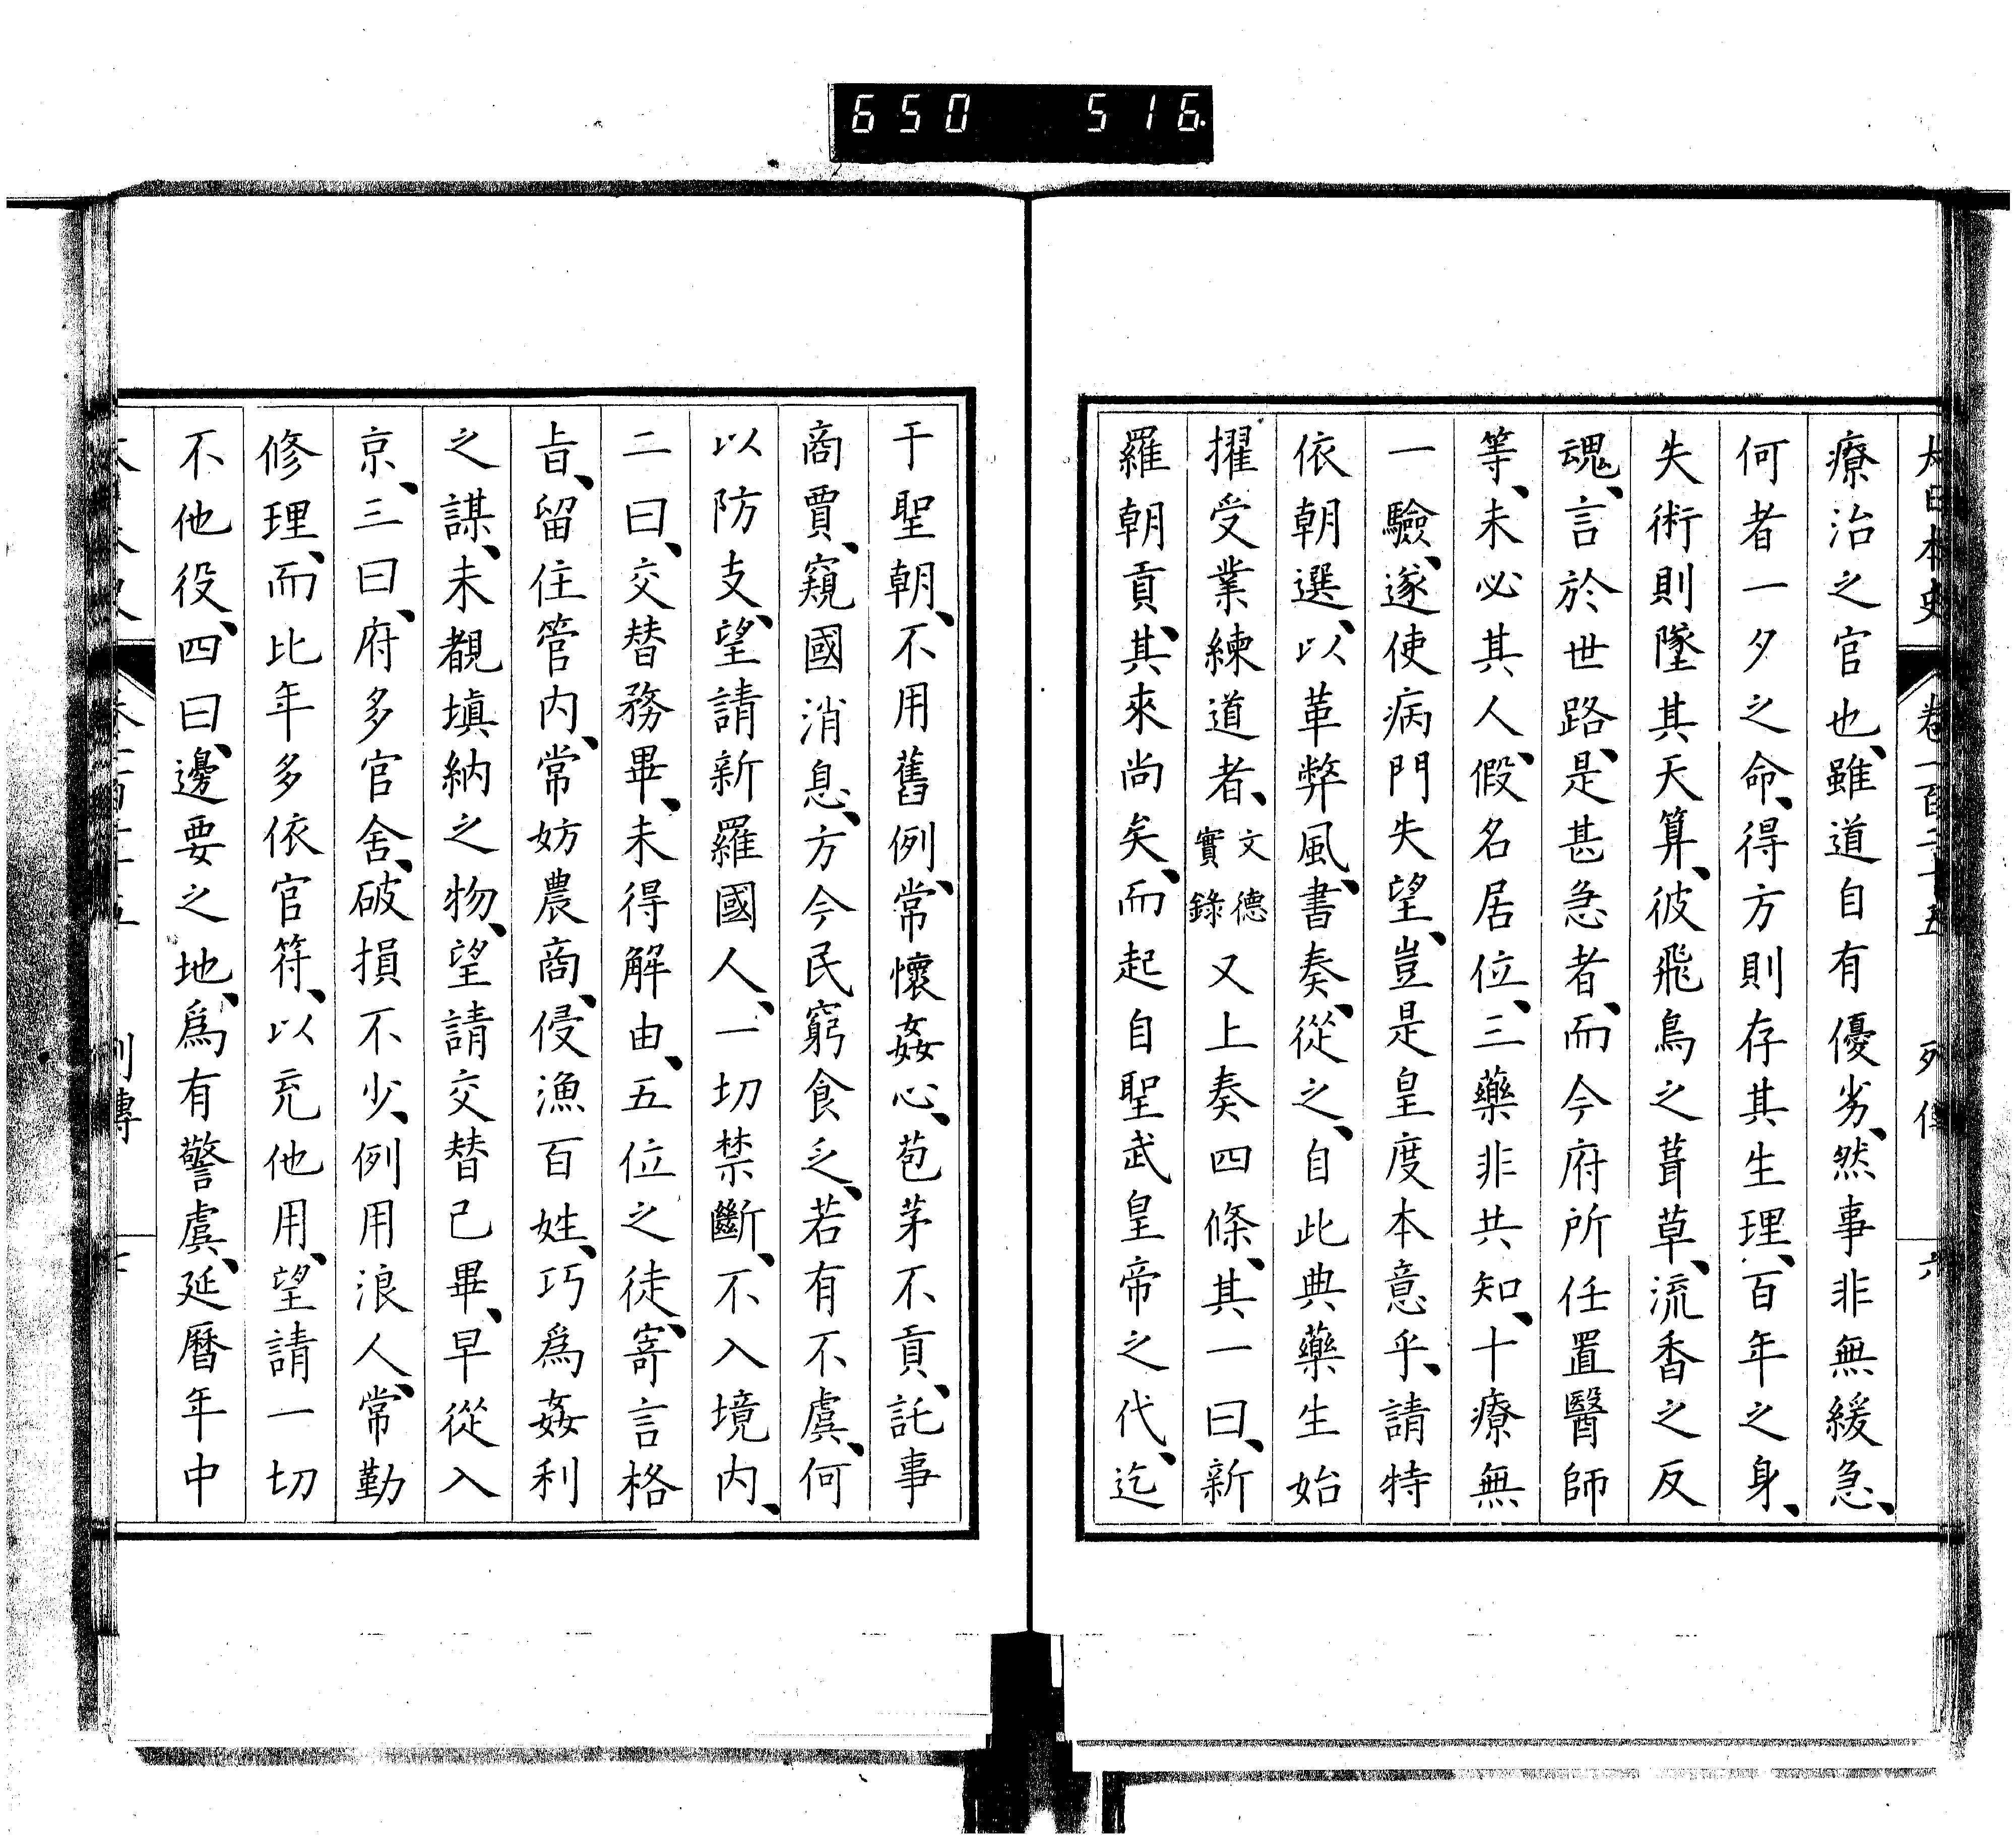 650 516
大日本史 卷一百二十五 列傳 六
療治之官也、雖道自有優劣、然事非無緩急、
何者一夕之命、得方則存其生理、百年之身、
失術則墜其天算、彼飛鳥之葺草、流香之反
魂、言於世路、是甚急者、而今府所任置醫師
等、未必其人、假名居位、三藥非共知、十療無
一驗、遂使病門失望、豈是皇度本意乎、請特
依朝選、以革弊風、書奏、從之、自此典藥生始
擢受業練道者、文德實錄又上奏四條、其一曰、新
羅朝貢、其來尚矣、而起自聖武皇帝之代、迄
于聖朝、不用舊例、常懷姦心、苞茅不貢、託事
商賈、窺國消息、方今民窮食乏、若有不虞、何
以防支、望請新羅國人、一切禁斷、不入境内、
二曰、交替務畢、未得解由、五位之徒、寄言格
旨、留住管内、常妨農商、侵漁百姓、巧爲姦利
之謀、未覩塡納之物、望請交替已畢、早從入
京、三曰、府多官舍、破損不少、例用浪人、常勤
修理、而比年多依官符、以充他用、望請一切
不他役、四曰、邊要之地、爲有警虞、延曆年中
列傳